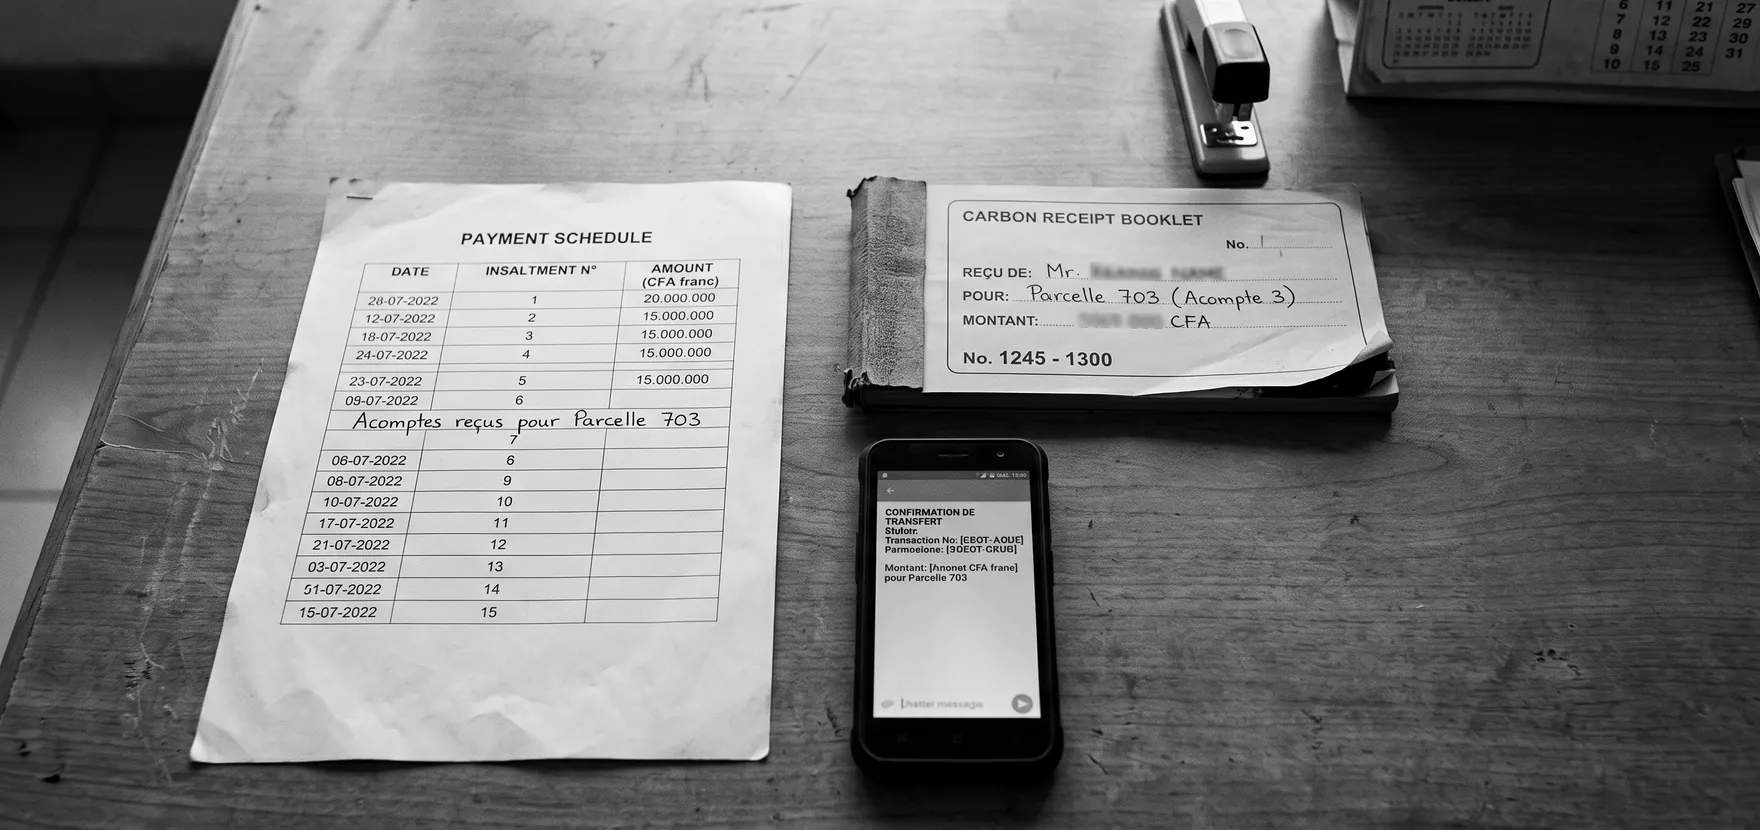 PAYMENT SCHEDULE
DATE INSALTMENT N° AMOUNT (CFA franc)
28-07-2022 1 20.000.000
12-07-2022 2 15.000.000
18-07-2022 3 15.000.000
24-07-2022 4 15.000.000
23-07-2022 5 15.000.000
09-07-2022 6
Acomptes reçus pour Parcelle 703
7
06-07-2022 6
08-07-2022 9
10-07-2022 10
17-07-2022 11
21-07-2022 12
03-07-2022 13
01-07-2022 14
15-07-2022 15
CARBON RECEIPT BOOKLET
No.
REÇU DE: Mr.
POUR: Parcelle 703 (Acompte 3)
MONTANT: CFA
No. 1245 - 1300
CONFIRMATION DE
TRANSFERT
Transaction No:
Montant: CFA
pour Parcelle 703
message
6 11 21 27
7 12 22 29
8 13 23 30
9 14 24 31
10 15 25